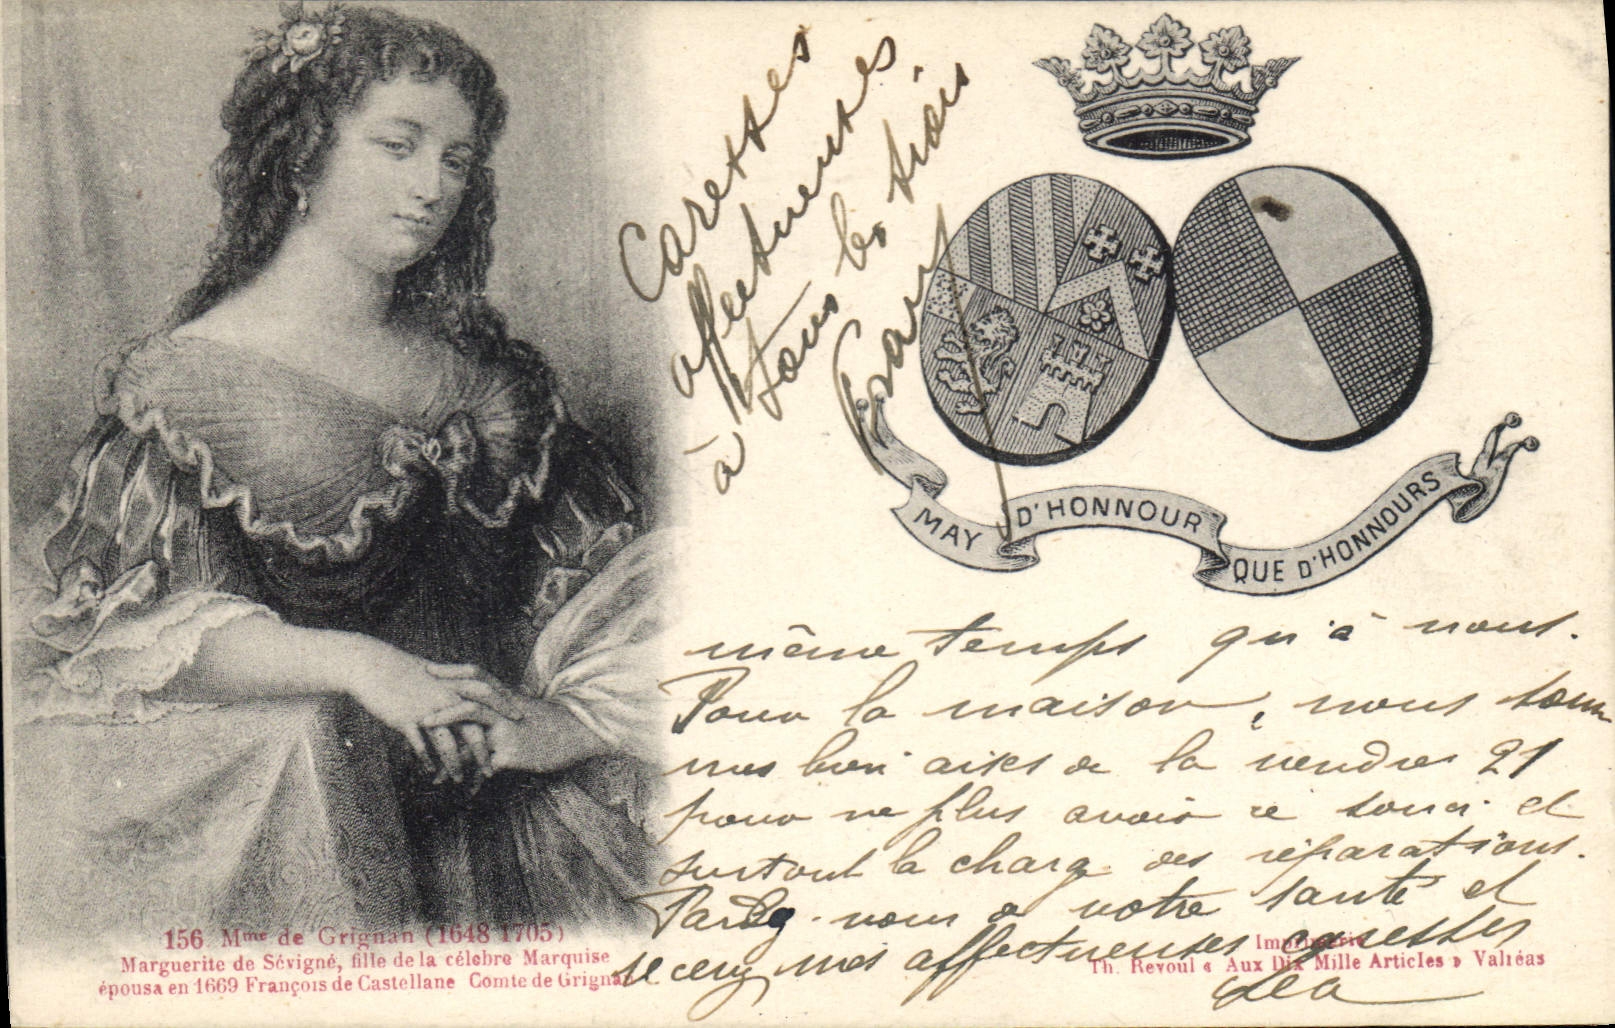 Caresses
affectueuses
à tous les trois
MAY D'HONNOUR QUE D'HONNOURS
même temps qu'à nous.
Pour la maison, nous som
mes bien aises de la vendre 21
pour ne plus avoir ce souci et
surtout la charge des réparations.
Parlez-nous de votre santé et
recevez mes affectueuses caresses
Léa
156 Mme de Grignan (1648-1705)
Marguerite de Sévigné, fille de la célèbre Marquise
épousa en 1669 François de Castellane Comte de Grignan
Imprimerie
Th. Revoul « Aux Dix Mille Articles » Valréas